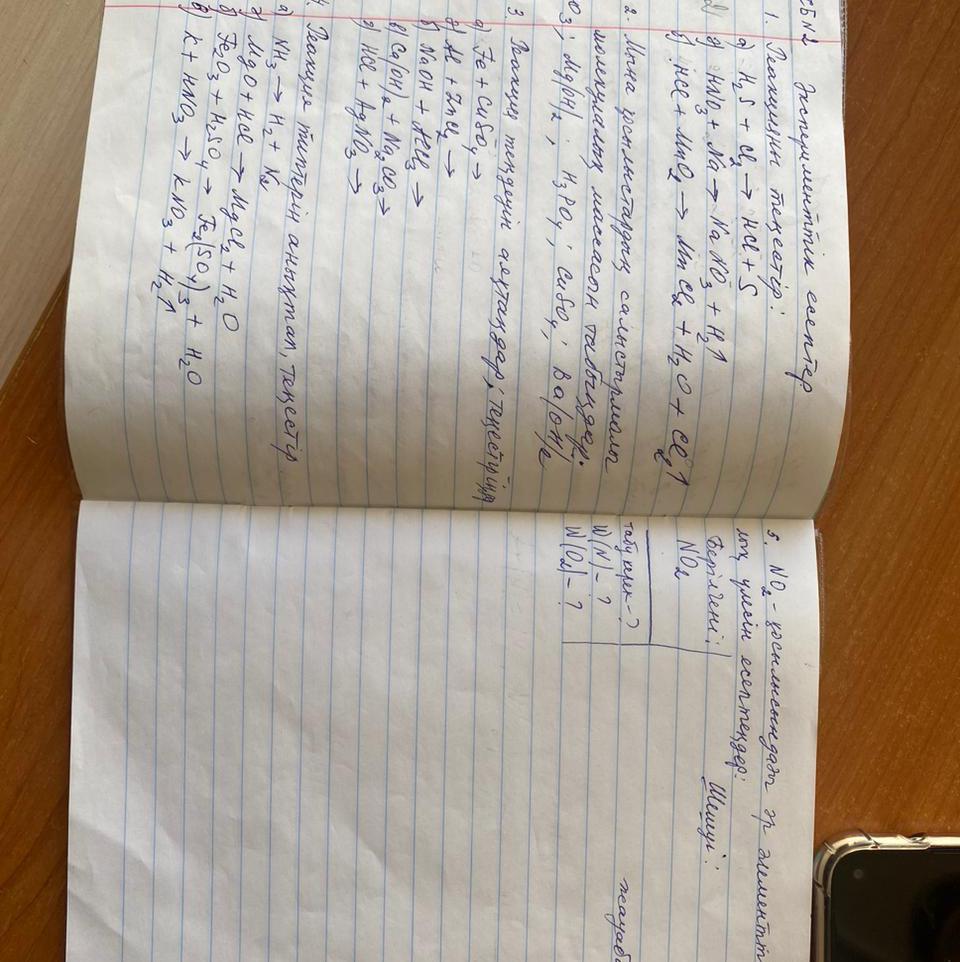 СБ№2 Эксперименттік есептер
1. Реакцияны теңестір:
а) H₂S + Cl₂ → HCl + S
д) HNO₃ + Na → NaNO₃ + H₂↑
б) HCl + MnO₂ → MnCl₂ + H₂O + Cl₂↑
2. Мына қосылыстардың салыстырмалы
молекулалық массасын табыңдар:
O₃; Mg(OH)₂; H₃PO₄; CuSO₄; Ba(OH)₂
3. Реакция теңдеуін аяқтаңдар, теңестіріңдер
а) Fe + CuSO₄ →
д) Al + ZnCl₂ →
б) NaOH + AlCl₃ →
в) Ca(OH)₂ + Na₂CO₃ →
г) HCl + AgNO₃ →
4. Реакция типтерін анықтап, теңестір
а) NH₃ → H₂ + N₂
г) MgO + HCl → MgCl₂ + H₂O
б) Fe₂O₃ + H₂SO₄ → Fe₂(SO₄)₃ + H₂O
в) K + HNO₃ → KNO₃ + H₂↑
5. NO₂ - қосылысындағы әр элементт
лық үлесін есептеңдер:
Берілгені: Шешуі:
NO₂
табу керек-?
W(N) - ?
W(O₂) - ?
жауабы